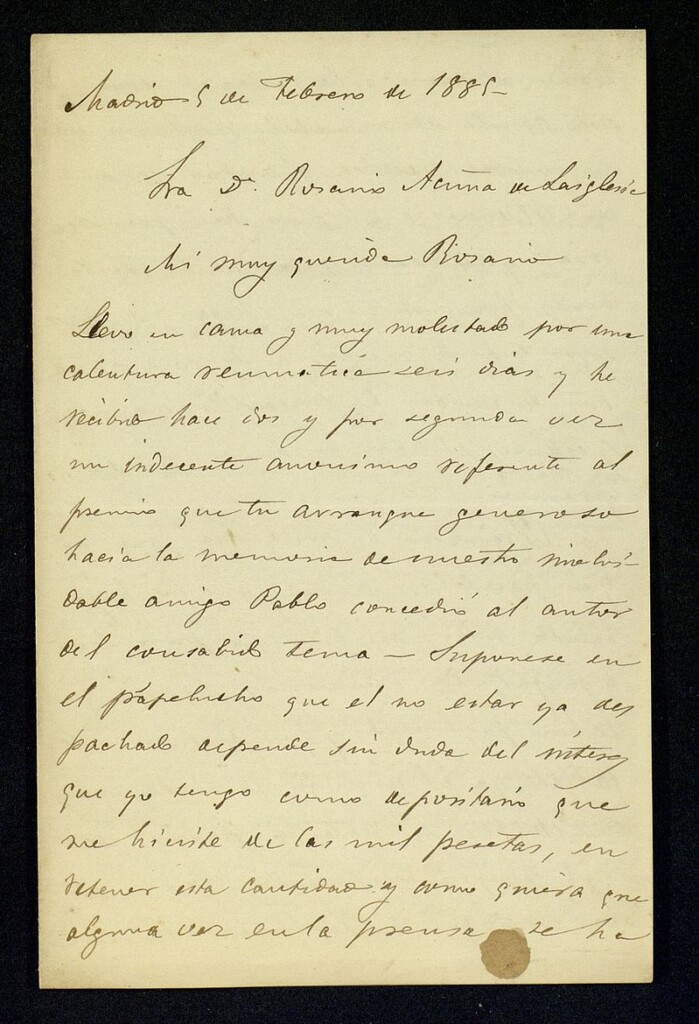 Madrid 5 de Febrero de 1885-
Sra Dª Rosario Acuña de Laiglesia
Mi muy querida Rosario
Llevo en cama y muy molestado por una
calentura reumatica seis dias y he
recibido hace dos y por segunda vez
un indecente anonimo referente al
premio que tu arranque generoso
hacia la memoria de nuestro inolvi-
dable amigo Pablo concedió al autor
del consabido tema - Suponese en
el papelucho que el no estar ya des
pachado depende sin duda del interes
que yo tengo como depositario que
me hiciste de las mil pesetas, en
retener esta cantidad y como quiera que
alguna vez en la prensa se ha